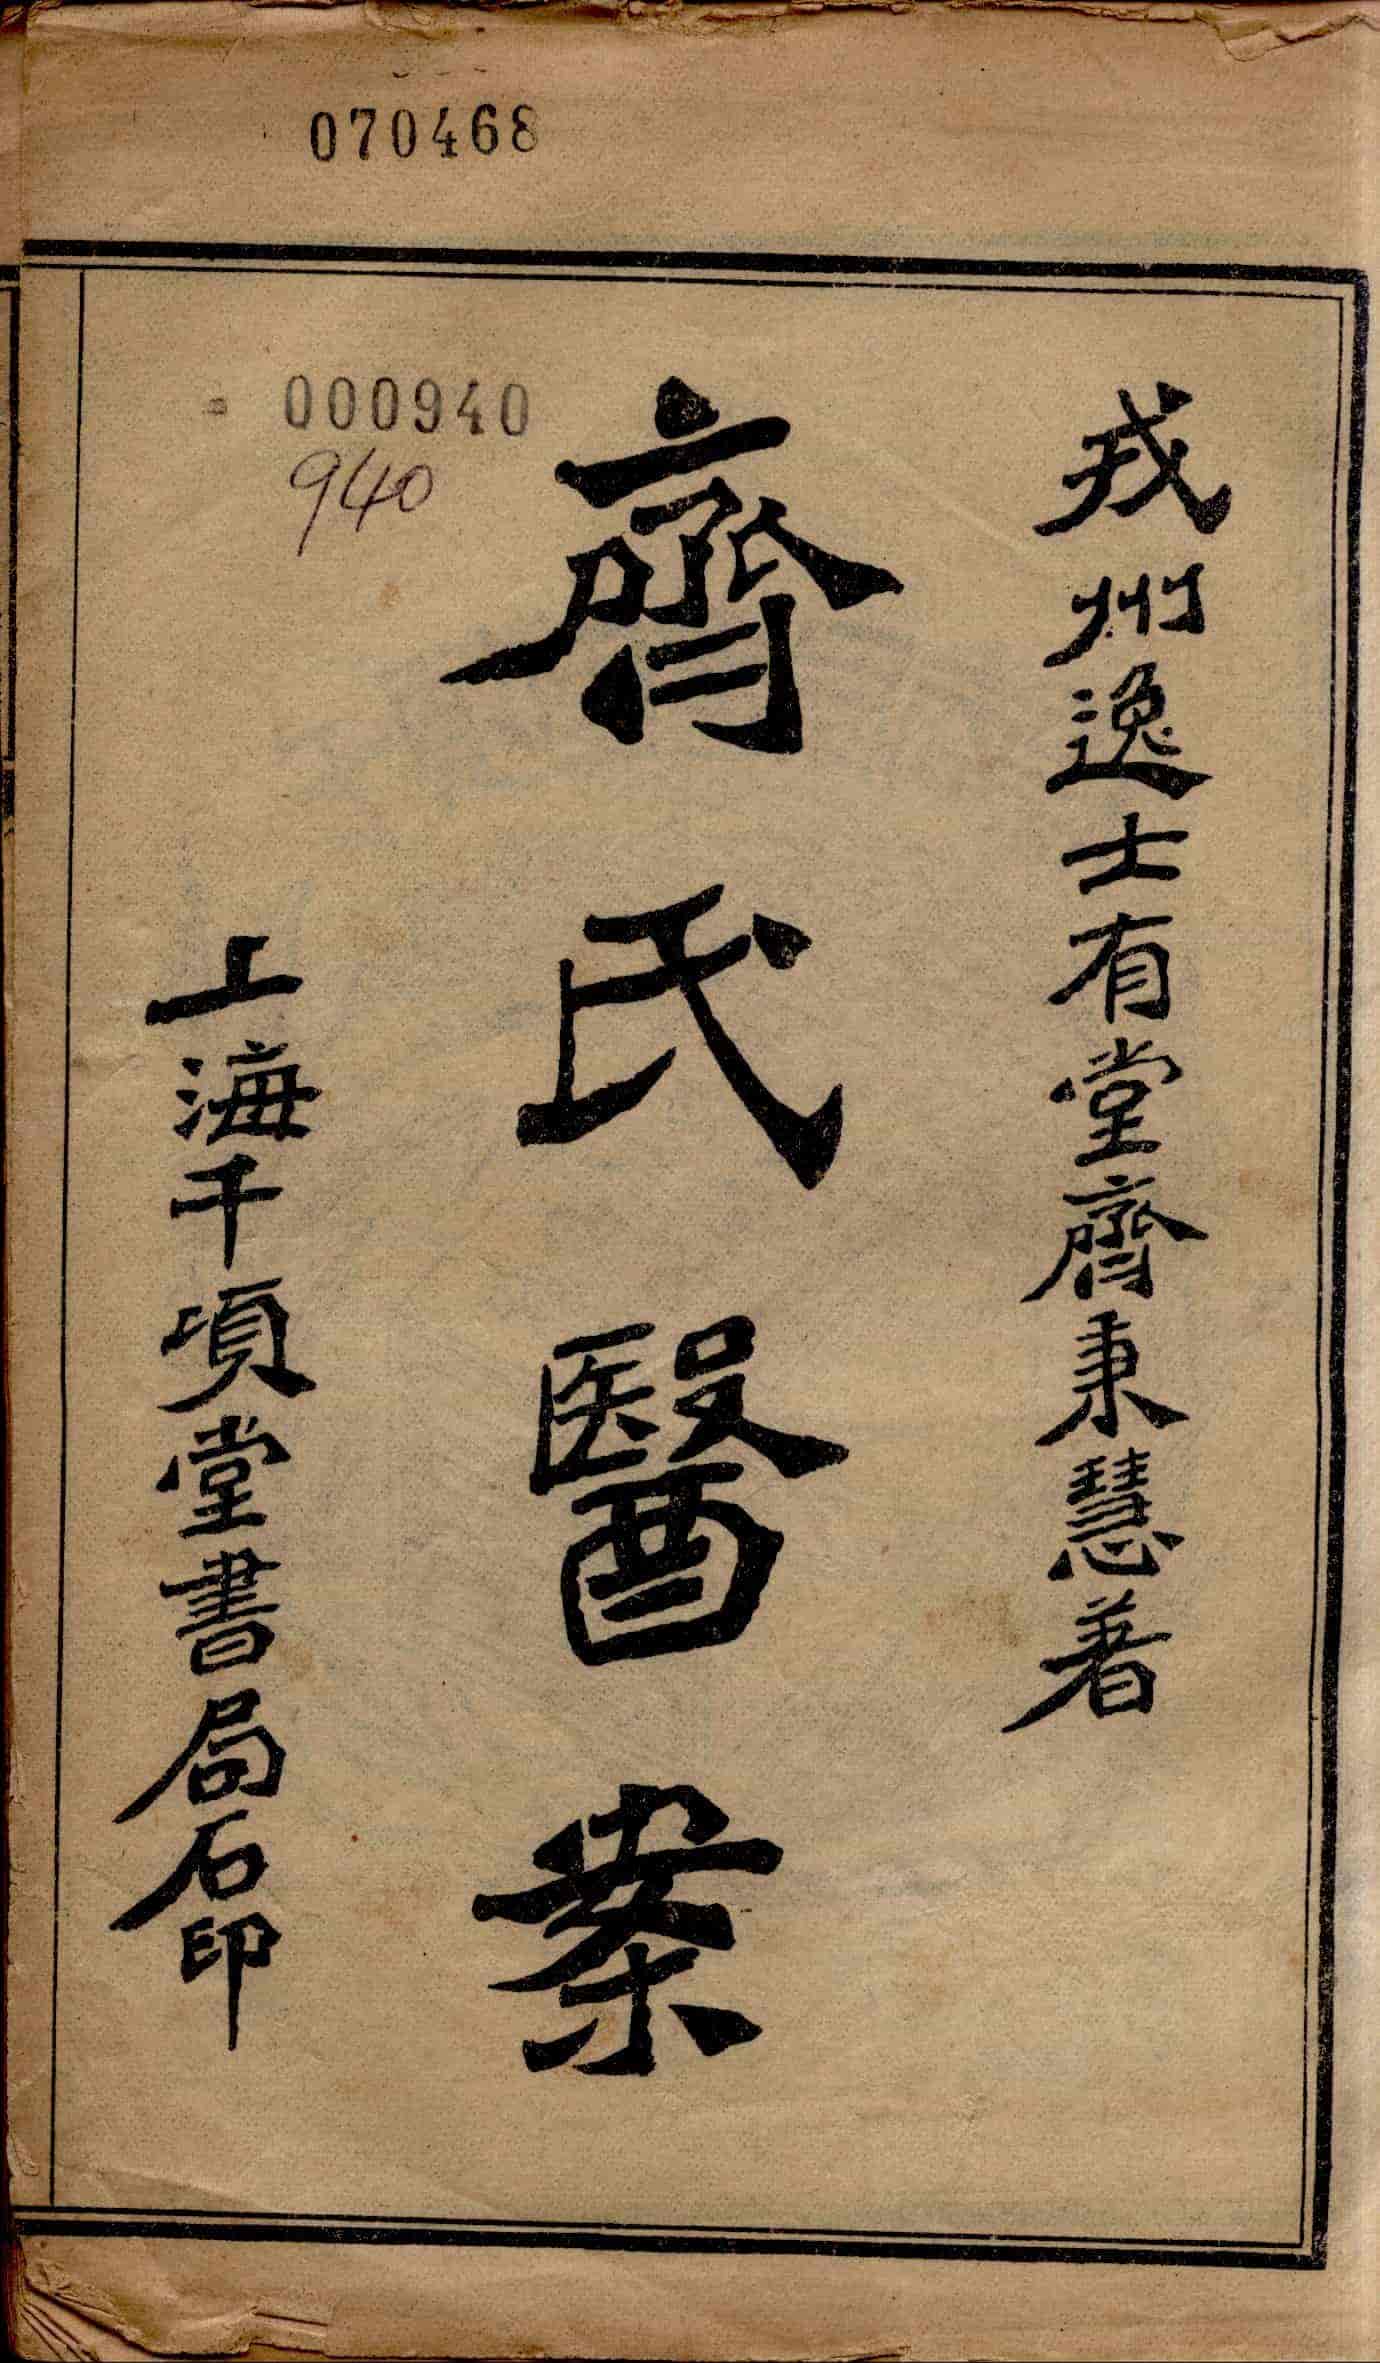 070468
戎州逸士有堂齊秉慧著
齊氏醫案
000940
940
上海千頃堂書局石印